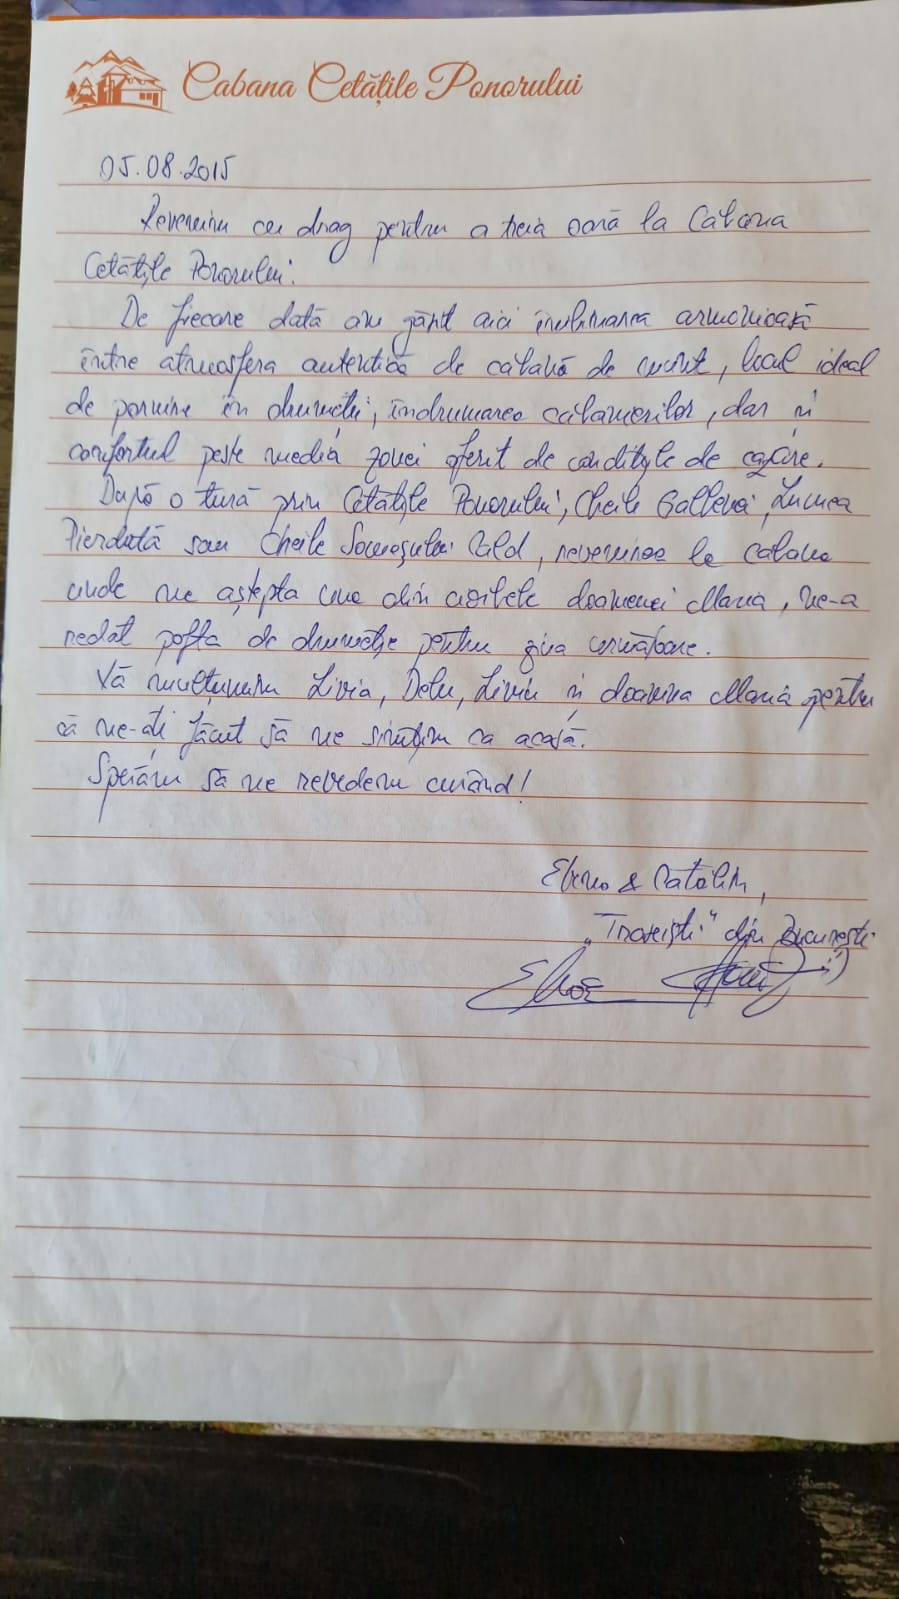 Cabana Cetățile Ponorului
05.08.2015
Revenim cu drag pentru a treia oară la Cabana
Cetățile Ponorului.
De fiecare dată am găsit aici îmbinarea armonioasă
între atmosfera autentică de cabană de munte, locul ideal
de pornire în drumeții, îndrumarea cabanierilor, dar și
confortul peste media zonei oferit de condițiile de cazare.
După o tură prin Cetățile Ponorului, Cheile Galbenei, Lumea
Pierdută sau Cheile Someșului Cald, revenirea la cabana
unde ne aștepta una din ciorbele doamnei Maria, ne-a
redat pofta de drumeție pentru ziua următoare.
Vă mulțumim Livia, Delu, Liviu și doamna Maria pentru
că ne-ați făcut să ne simțim ca acasă.
Sperăm să ne revedem curând!
Elena & Cătălin,
din București
:)